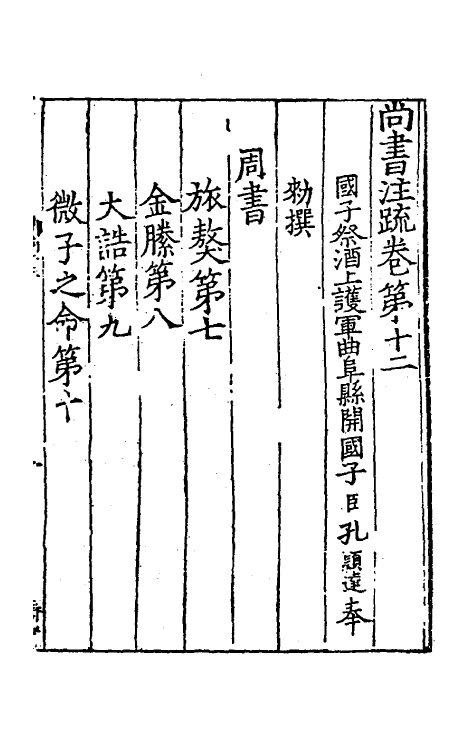 尚書注疏卷第十二
國子祭酒上護軍曲阜縣開國子臣孔穎達奉
勑撰
周書
旅獒第七
金縢第八
大誥第九
微子之命第十